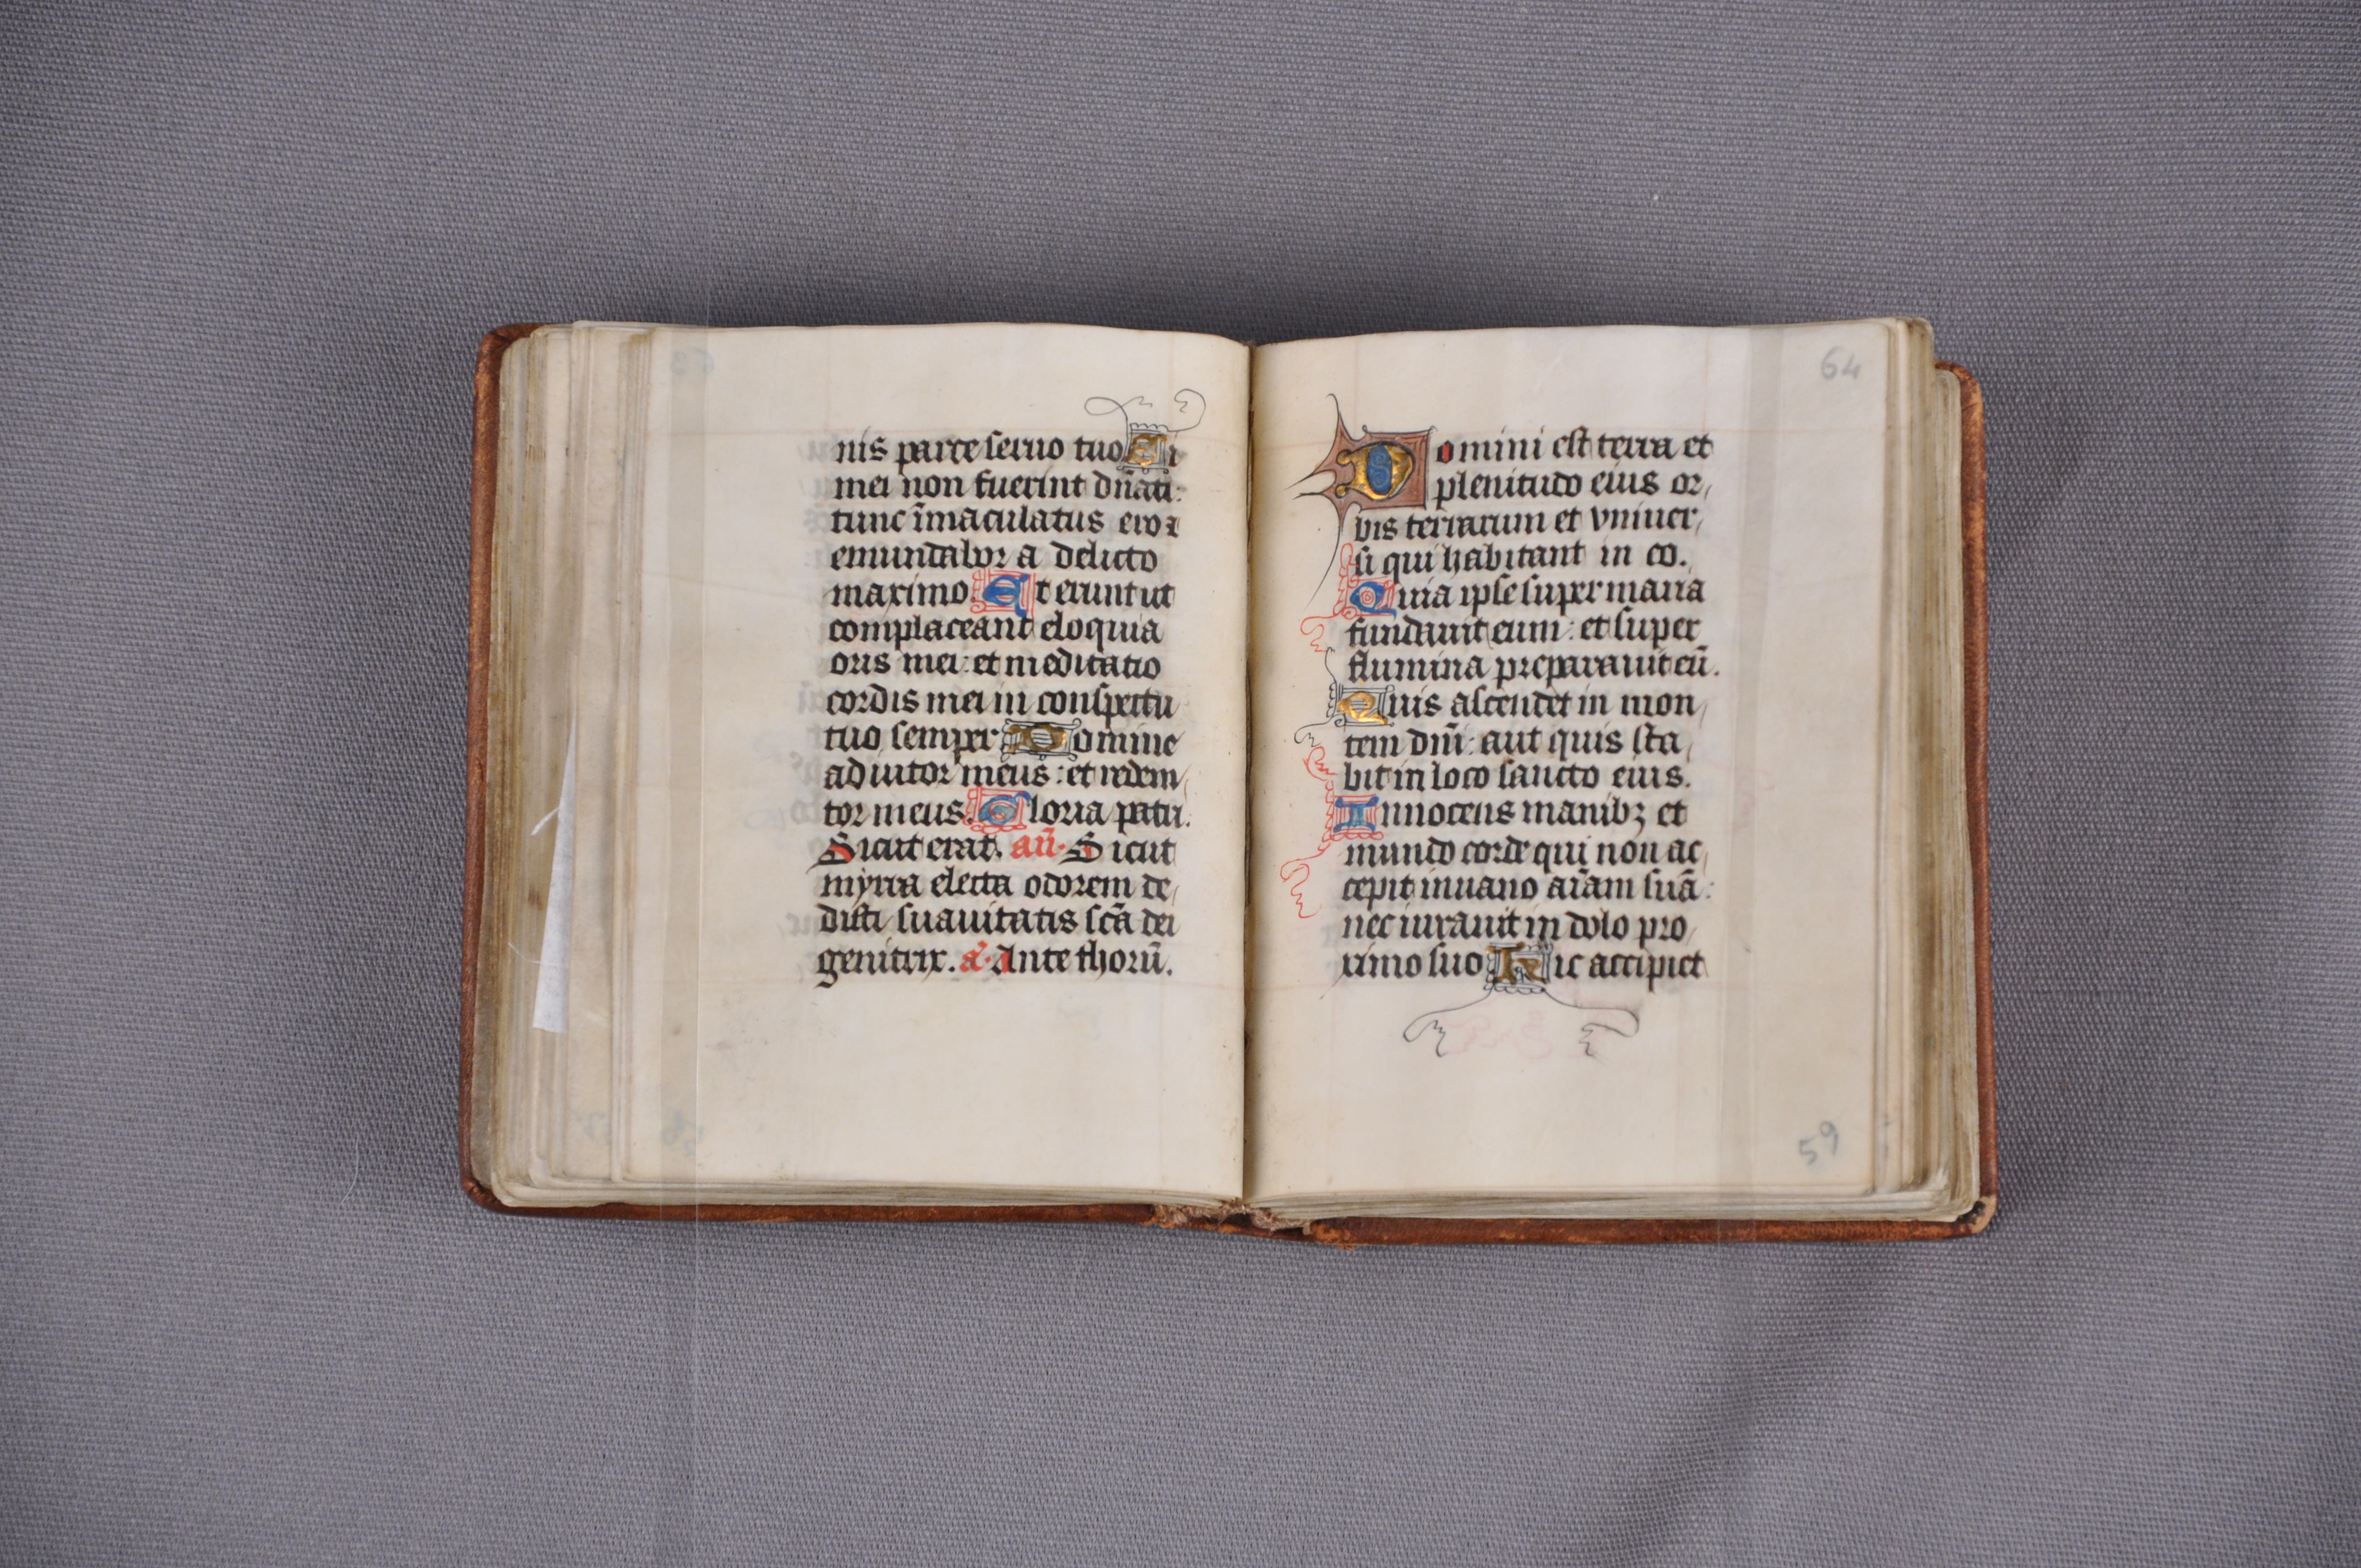 nis parce seruo tuo Si
mei non fuerint dn̄ati:
tunc īmaculatus ero ⁊
emundabor a delicto
maximo. Et erunt ut
complaceant eloquia
oris mei: et meditatio
cordis mei in conspectu
tuo semper Domine
adiutor meus: et redem/
tor meus. Gloria patri.
Sicut erat. an̄. Sicut
myrra electa odorem de/
disti suauitatis sc̄a dei
genitrix. a. Ante thorū.
64
Domini est terra et
plenitudo eius or/
bis terrarum et vniuer/
si qui habitant in eo.
Quia ipse super maria
fundauit eum: et super
flumina preparauit eū.
Quis ascendet in mon/
tem dn̄i: aut quis sta/
bit in loco sancto eius.
Innocens manibꝫ et
mundo corde qui non ac/
cepit in uano aīam suā:
nec iurauit in dolo pro/
ximo suo Hic accipiet
59